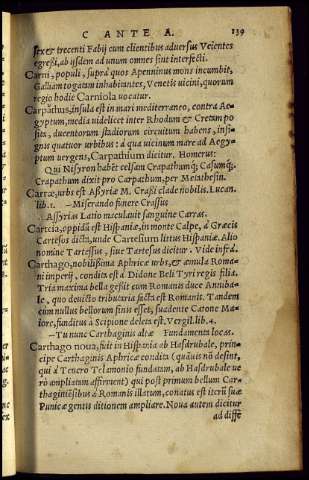 CANTE A. 139
sex et trecenti Fabij cum clientibus aduersus Veientes
egressi, ab ijsdem ad unum omnes siut interfecti.
Carni, populi, supra quos Apenninus mons incumbit,
Galliam togatam inhabitantes, Venetis uicini, quorum
regio hodie Carniola uocatur.
Carpathus, insula est in mari mediterraneo, contra Ae-
gyptum, media uidelicet inter Rhodum & Cretam po-
sita, ducentorum stadiorum circuitum habens, insi-
gnis quatuor urbibus: à qua uicinum mare ad Aegy-
ptum uergens, Carpathium dicitur. Homerus:
Qui Nisyron habēt celsam Crapathumq; Casumq;.
Crapathum dixit pro Carpathum, per Metathesin.
Carræ, urbs est Assyriæ M. Crassi clade nobilis. Lucan.
lib. 1. —Miserando funere Crassus
Assyrias Latio maculauit sanguine Carras.
Carteia, oppidū est Hispaniæ, in monte Calpe, à Græcis
Cartesos dicta, unde Cartesium littus Hispaniæ. Alio
nomine Tartessus, siue Tartesus dicitur. Vide infrà.
Carthago, nobilissima Aphricæ urbs, & æmula Roma-
ni imperij, condita est à Didone Beli Tyri regis filia.
Tria maxima bella gessit cum Romanis duce Anniba-
le, quo deuicto tributaria facta est Romanis. Tandem
cum nullus bellorum finis esset, suadente Catone Ma-
iore, funditus à Scipione deleta est. Vergil. lib. 4.
—Tu nunc Carthaginis altæ Fundamenta locas.
Carthago noua, fuit in Hispania ab Hasdrubale, prin-
cipe Carthaginis Aphricæ condita (quāuis nō desint,
qui à Teucro Telamonio fundatam, ab Hasdrubale ue
rò ampliatam affirment) qui post primum bellum Car-
thaginiēsibus à Romanis illatum, conatus est iterū suæ
Punicæ gentis ditionem ampliare. Noua autem dicitur
ad diffe